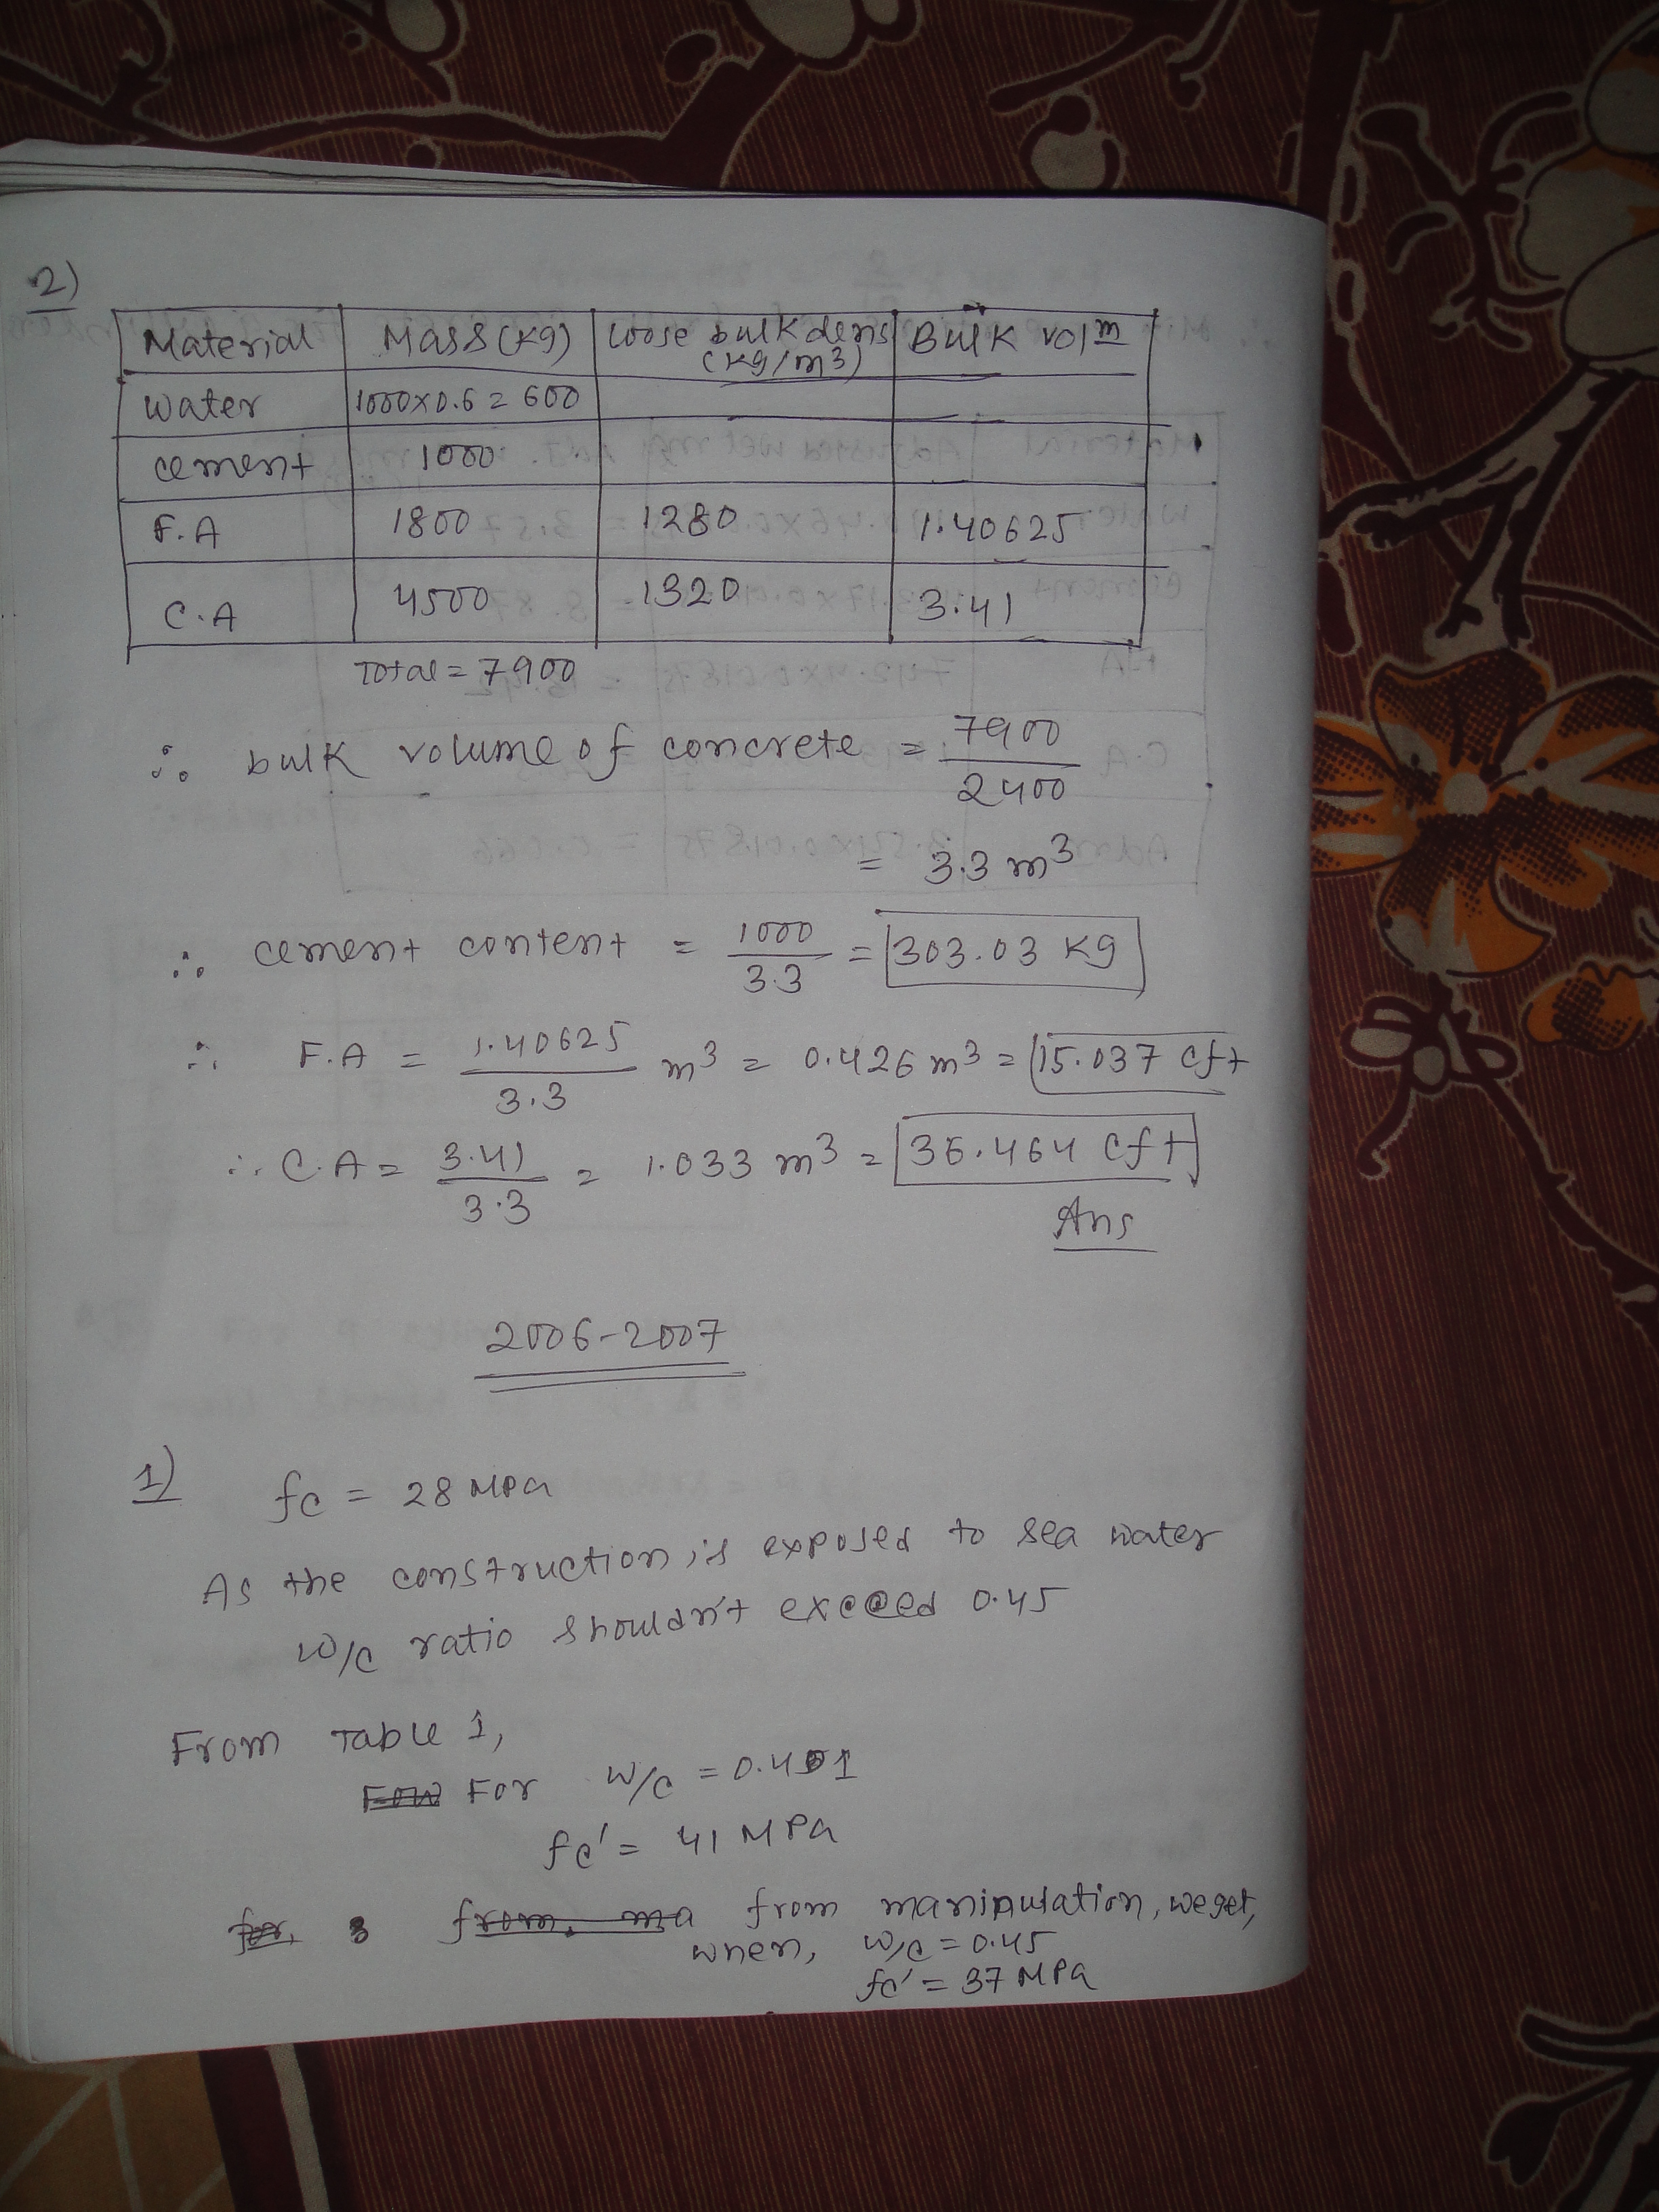 2)
Material Mass (Kg) Loose bulk dens (Kg/m3) Bulk volm
Water 1000×0.6 = 600
cement 1000
F.A 1800 1280 1.40625
C.A 4500 1320 3.41
Total = 7900
∴ bulk volume of concrete = 7900/2400
= 3.3 m3
∴ cement content = 1000/3.3 = 303.03 Kg
∴ F.A = 1.40625/3.3 m3 = 0.426 m3 = 15.037 cft
∴ C.A = 3.41/3.3 = 1.033 m3 = 36.464 cft
Ans
2006-2007
1) fc = 28 MPa
As the construction, is exposed to sea water
W/C ratio shouldn't exceed 0.45
From Table 1,
For W/C = 0.41
fc' = 41 MPa
from manipulation, we get,
when, W/C = 0.45
fc' = 37 MPa